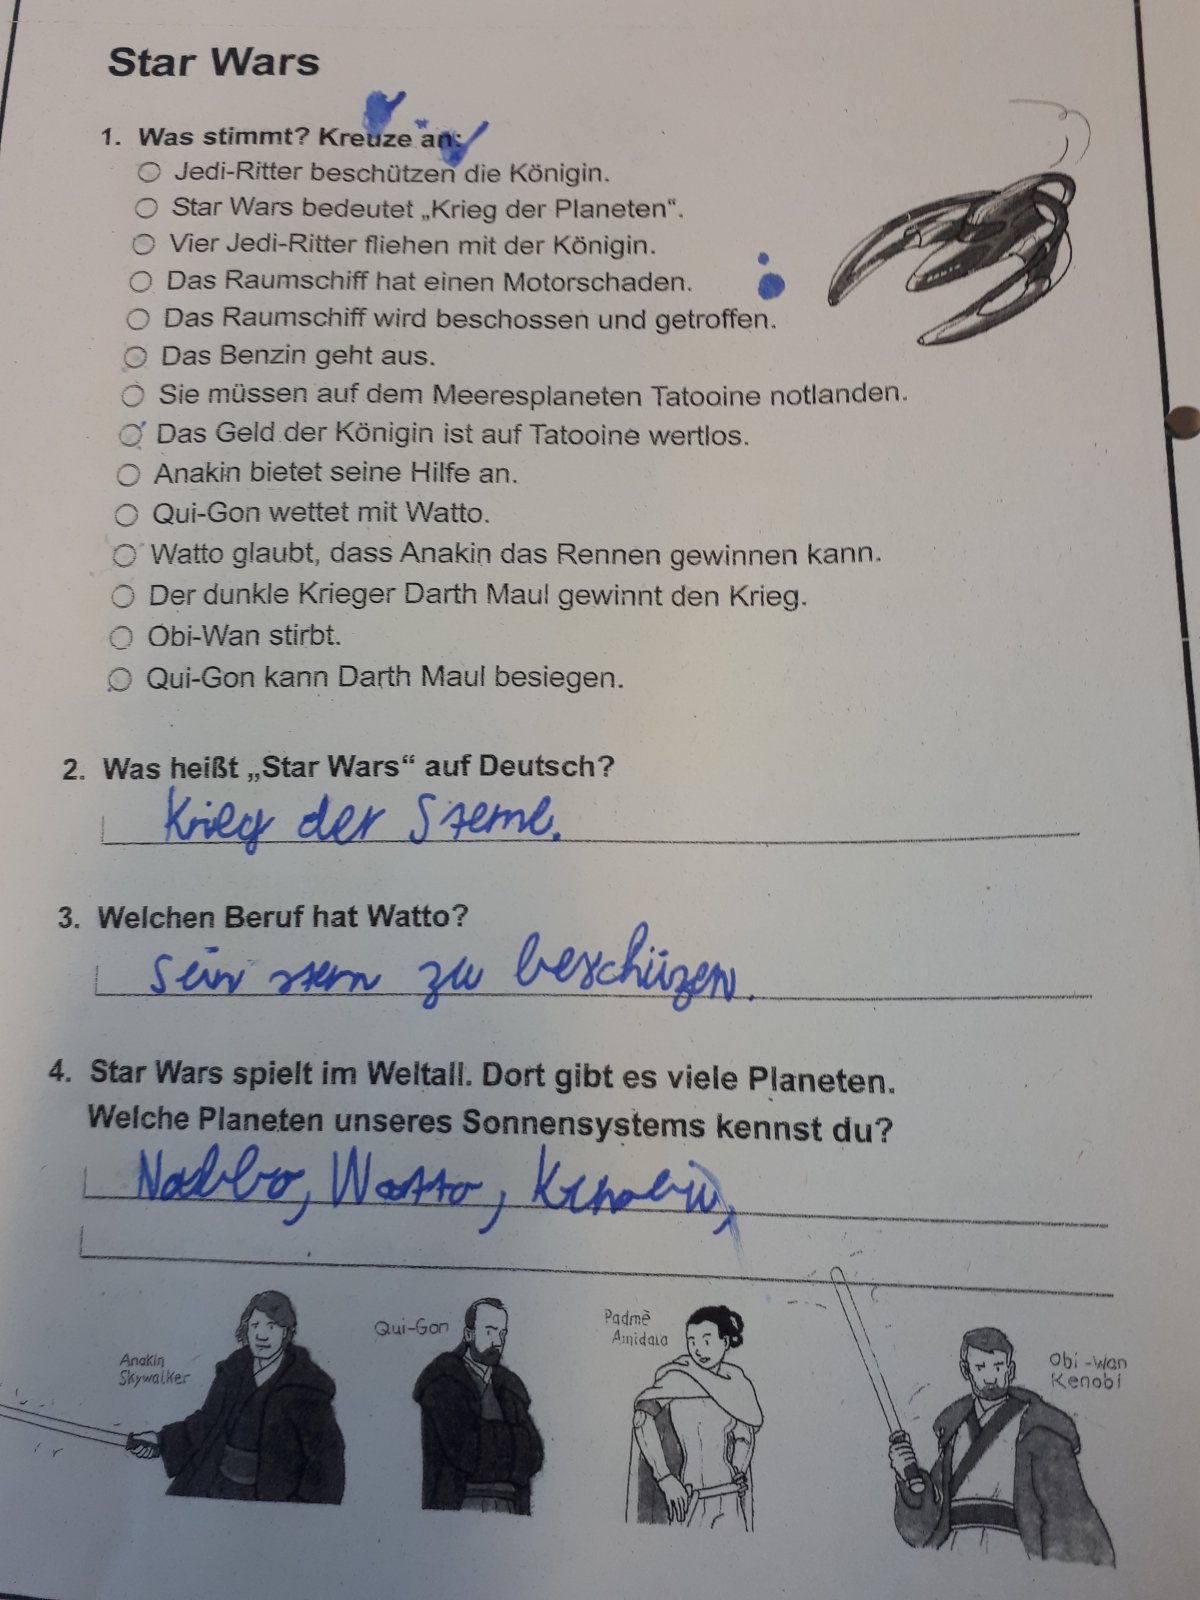 Star Wars
1. Was stimmt? Kreuze an:
Jedi-Ritter beschützen die Königin.
Star Wars bedeutet „Krieg der Planeten“.
Vier Jedi-Ritter fliehen mit der Königin.
Das Raumschiff hat einen Motorschaden.
Das Raumschiff wird beschossen und getroffen.
Das Benzin geht aus.
Sie müssen auf dem Meeresplaneten Tatooine notlanden.
Das Geld der Königin ist auf Tatooine wertlos.
Anakin bietet seine Hilfe an.
Qui-Gon wettet mit Watto.
Watto glaubt, dass Anakin das Rennen gewinnen kann.
Der dunkle Krieger Darth Maul gewinnt den Krieg.
Obi-Wan stirbt.
Qui-Gon kann Darth Maul besiegen.
2. Was heißt „Star Wars“ auf Deutsch?
Krieg der Sterne.
3. Welchen Beruf hat Watto?
Sein stern zu beschüzen.
4. Star Wars spielt im Weltall. Dort gibt es viele Planeten.
Welche Planeten unseres Sonnensystems kennst du?
Nabbo, Watto, Kenobi,
Anakin
Skywalker
Qui-Gon
Padmè
Amidala
Obi-Wan
Kenobi